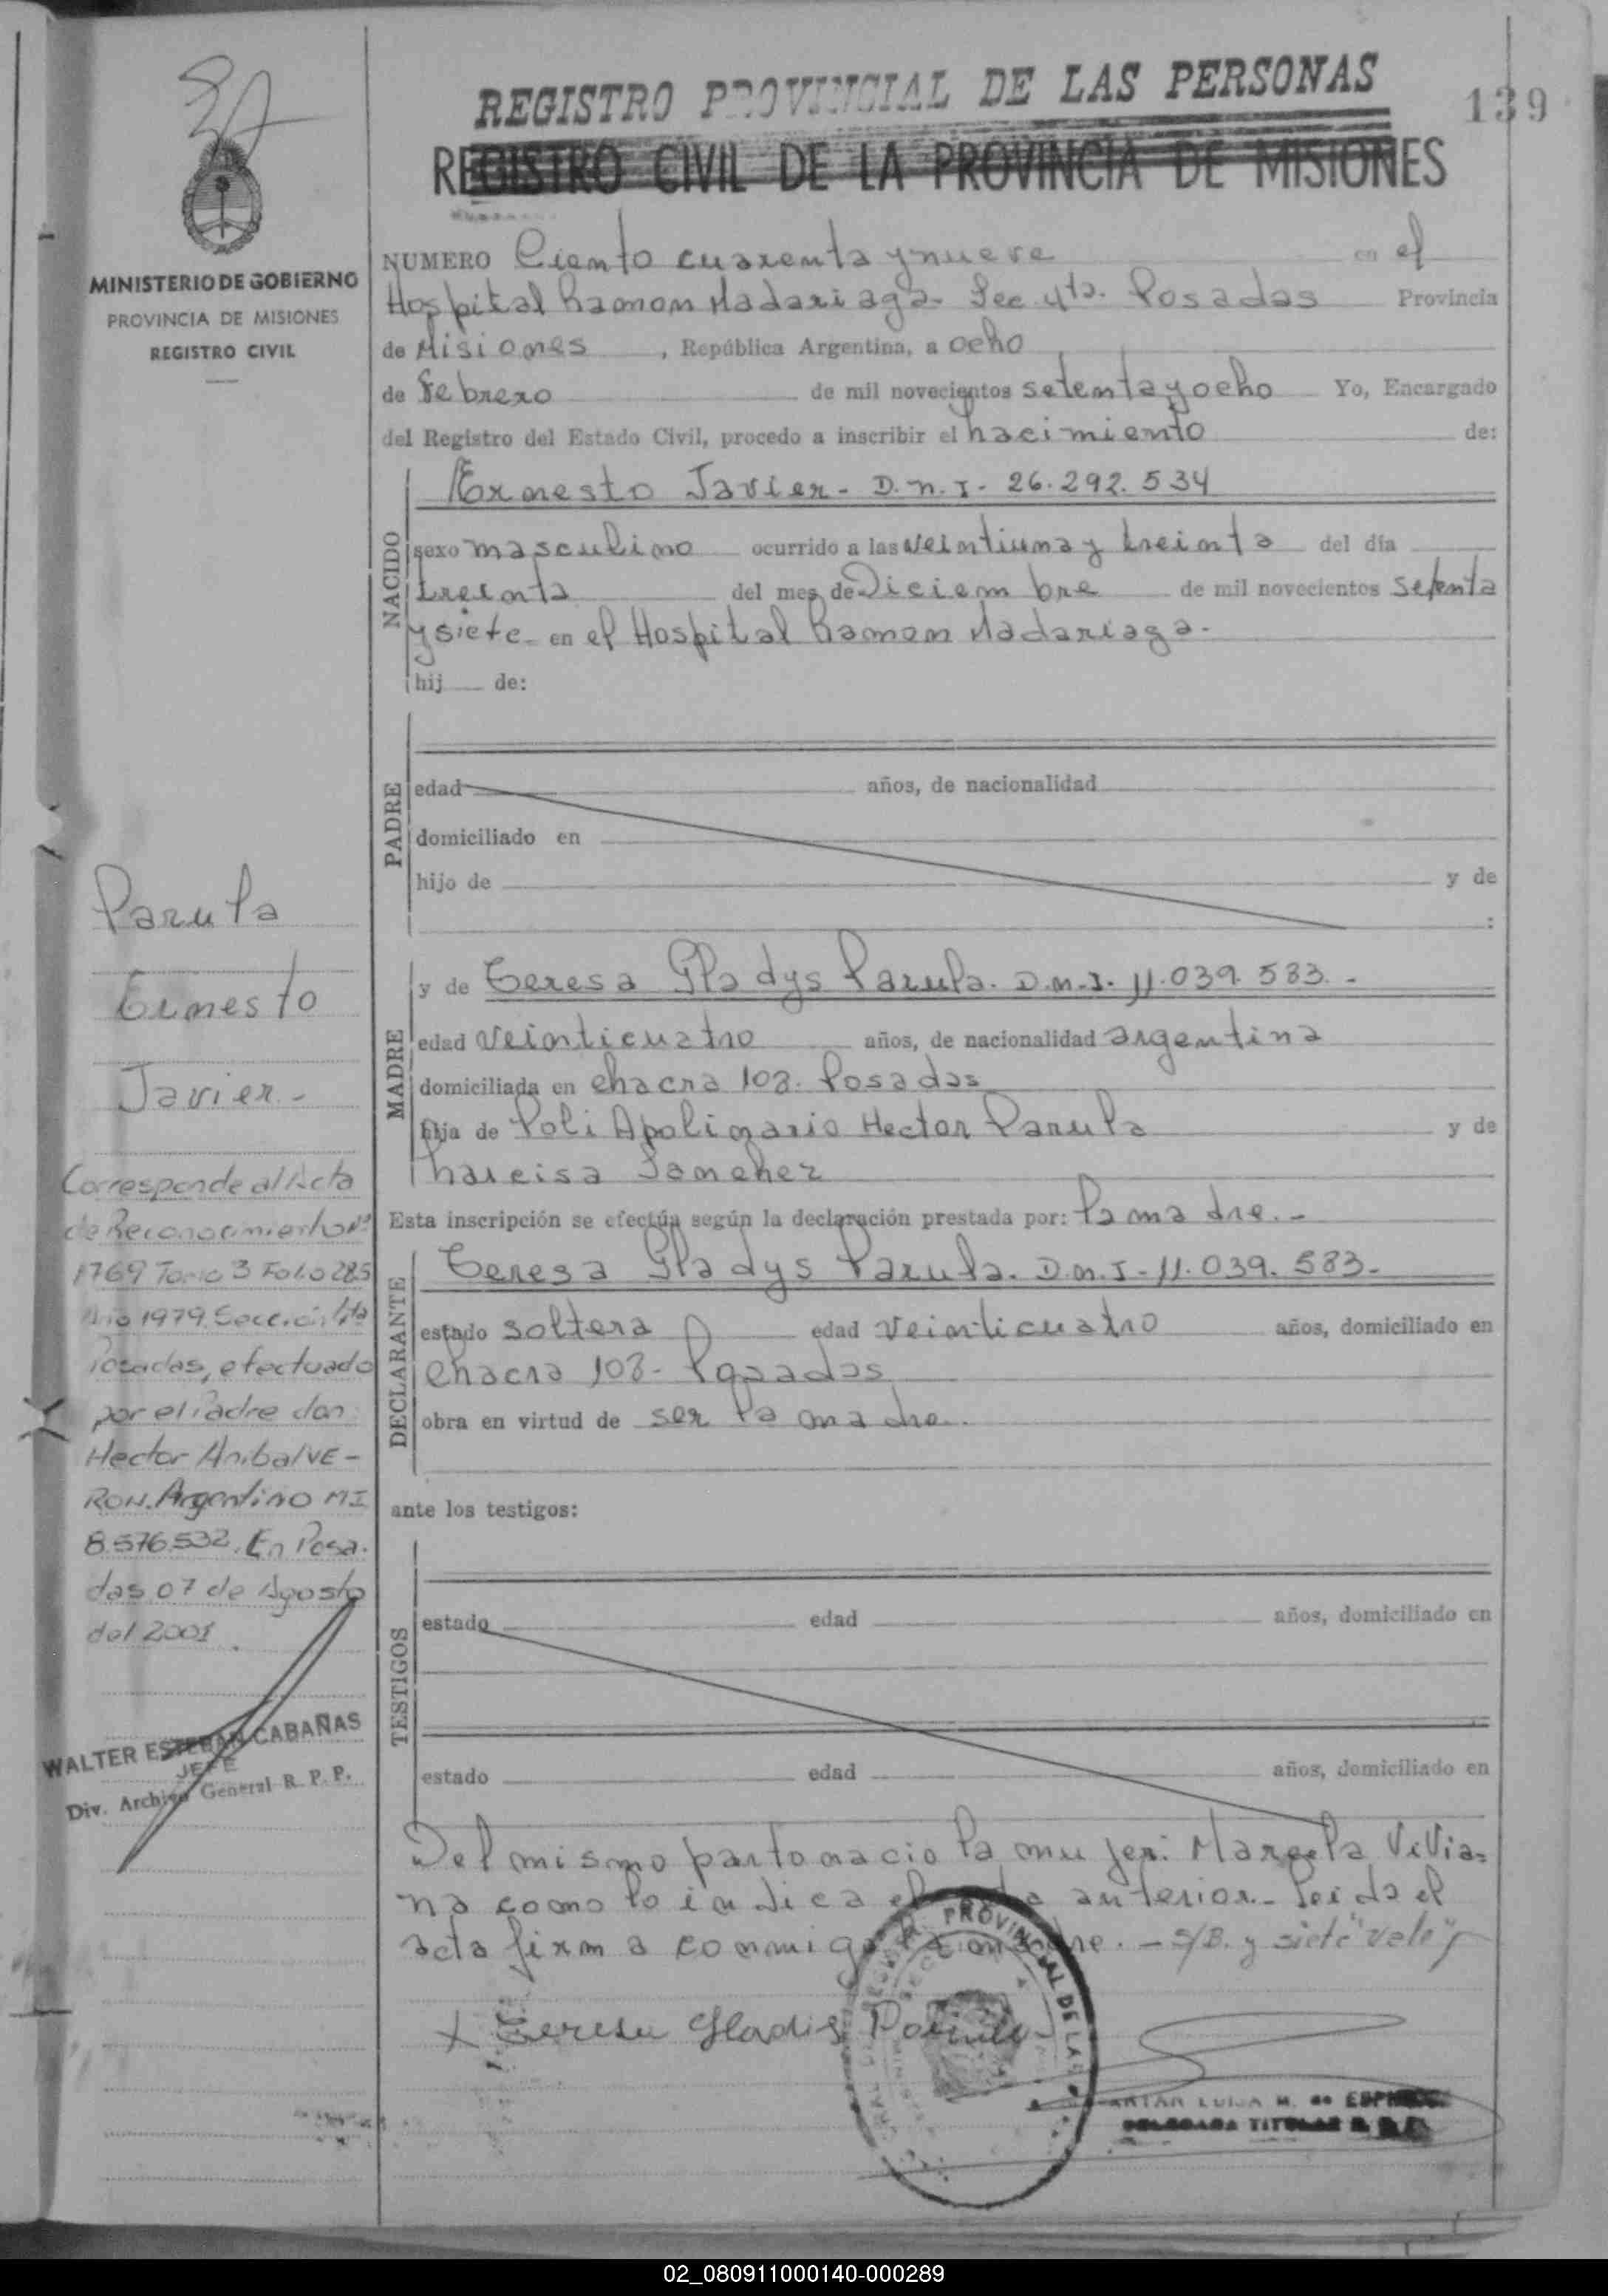 REGISTRO PROVINCIAL DE LAS PERSONAS
139
REGISTRO CIVIL DE LA PROVINCIA DE MISIONES
MINISTERIO DE GOBIERNO
PROVINCIA DE MISIONES
REGISTRO CIVIL
NUMERO Ciento cuarenta y nueve en el
Hospital Ramon Madariaga- Sec 4ta. Posadas Provincia
de Misiones, República Argentina, a ocho
de Febrero de mil novecientos setenta y ocho Yo, Encargado
del Registro del Estado Civil, procedo a inscribir el nacimiento de:
NACIDO
Ernesto Javier- D.N.I- 26.292.534
sexo masculino ocurrido a las veintiuna y treinta del día
treinta del mes de Diciembre de mil novecientos setenta
y siete- en el Hospital Ramon Madariaga-
hij de:
PADRE
edad años, de nacionalidad
domiciliado en
hijo de y de
:
MADRE
y de Teresa Gladys Parula. D.N.I. 11.039.583.-
edad veinticuatro años, de nacionalidad argentina
domiciliada en chacra 108- Posadas
hija de Poli Apolinario Hector Parula y de
Narcisa Sanchez
Esta inscripción se efectúa según la declaración prestada por: la madre.-
DECLARANTE
Teresa Gladys Parula. D.N.I-11.039.583-
estado soltera edad veinticuatro años, domiciliado en
chacra 108- Posadas
obra en virtud de ser la madre.
ante los testigos:
TESTIGOS
estado edad años, domiciliado en
estado edad años, domiciliado en
Del mismo parto nacio la mujer: Marcela Vivia=
na como lo indica el acta anterior- Leida el
acta firma conmigo la madre.- S/B. y siete "vale"
X Teresa Gladis Parula
PROVINCIAL DE LAS
LUISA M. de
DELEGADA TITULAR
Parula
Ernesto
Javier-
Corresponde al Acta
de Reconocimiento Nº
1769 Tomo 3 Folio 285
Año 1979 Sección 4ta
Posadas, efectuado
por el Padre don
Hector Anibal VE-
RON. Argentino MI
8.576.532. En Posa-
das 07 de Agosto
del 2001.
WALTER ESTEBAN CABAÑAS
JEFE
Div. Archivo General R. P. P.
02_080911000140-000289